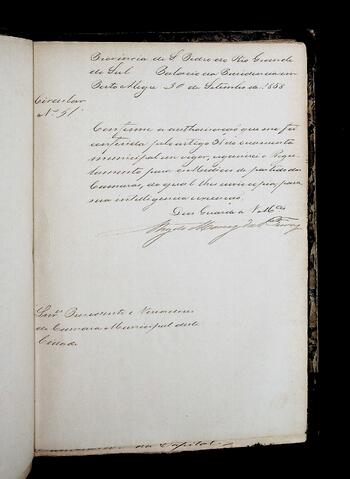 Provincia de S. Pedro do Rio Grande
do Sul Palacio da Presidencia em
Porto Alegre 30 de Setembro de 1858
Circular
Nº 51
Conforme a authorisação que me foi
conferida pelo artigo 31 do orçamento
municipal em vigor, organisei o Regu
lamento para os Medicos de partido das
Camaras, do qual lhe envio copia para
sua intelligencia e execução.
Deus Guarde a V. Mces
Snrs Presidente e Vereadores
da Camara Municipal desta
Cidade
da Capital